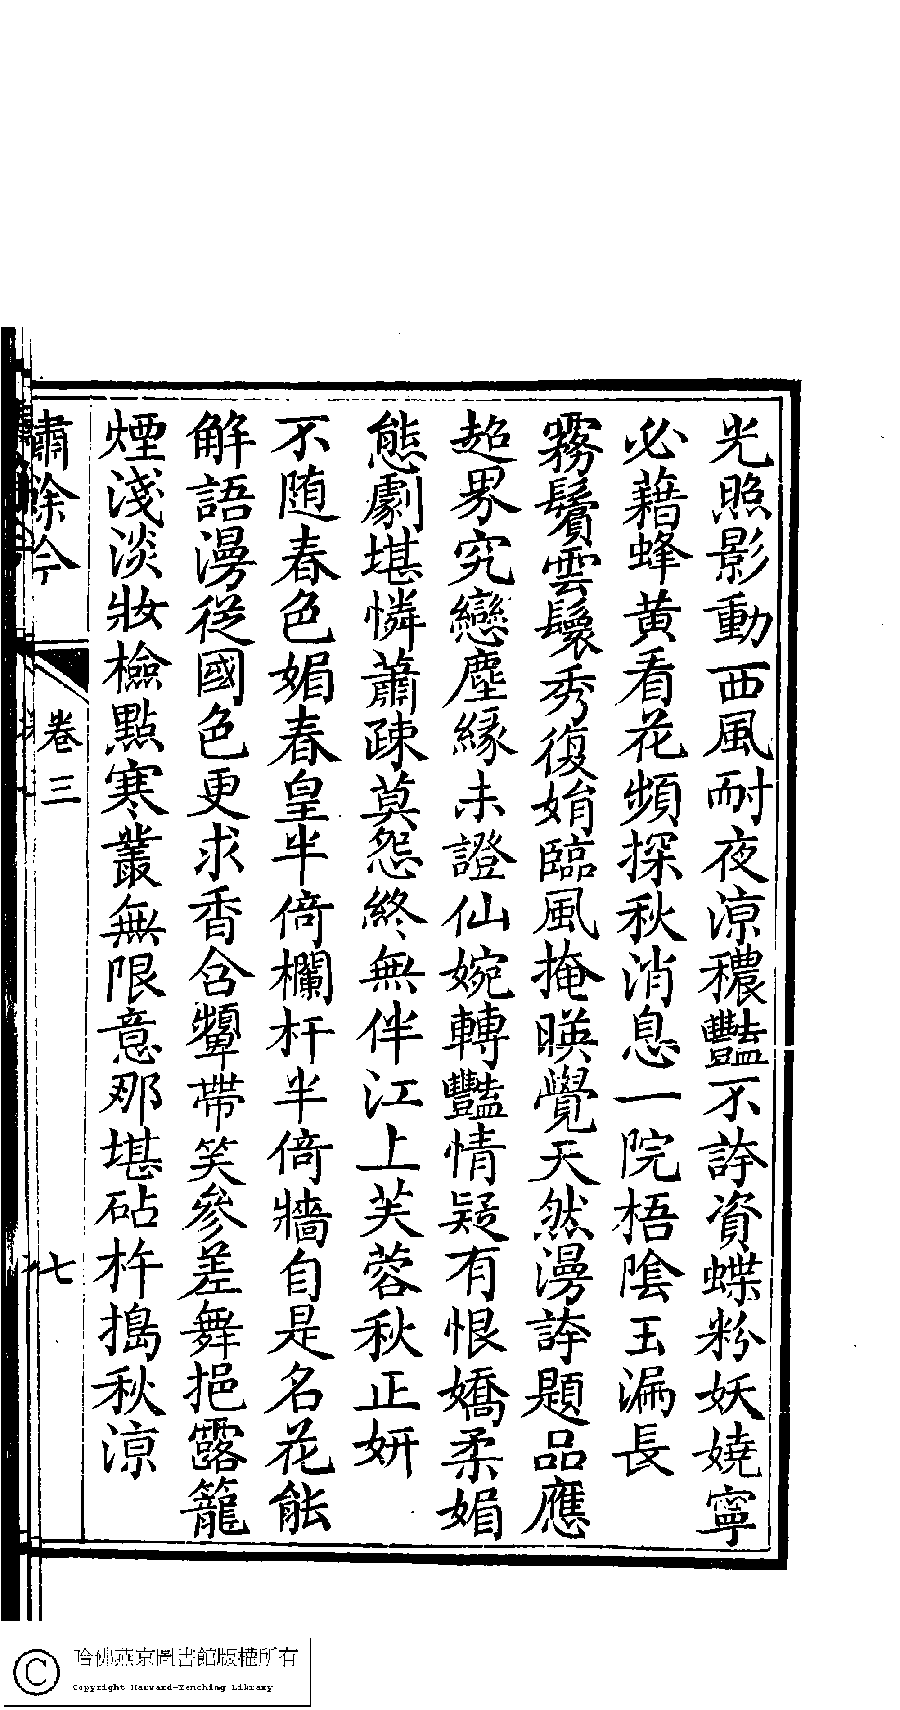 光照影動西風耐夜涼穠豔不誇資蝶粉妖嬈寧
必藉蜂黄看花頻探秋消息一院梧陰玉漏長
霧鬢雲鬟秀復姢臨風掩暎覺天然漫誇題品應
超界究戀塵緣未證仙婉轉豔情疑有恨嬌柔媚
態劇堪憐蕭疎莫怨終無伴江上芙蓉秋正妍
不随春色媚春皇半倚欄杆半倚牆自是名花能
解語漫從國色更求香含顰帶笑參差舞挹露籠
煙淺淡妝檢點寒叢無限意那堪砧杵搗秋涼
繡餘吟
卷三
七
哈佛燕京圖書館版權所有
Copyright Harvard-Yenching Library